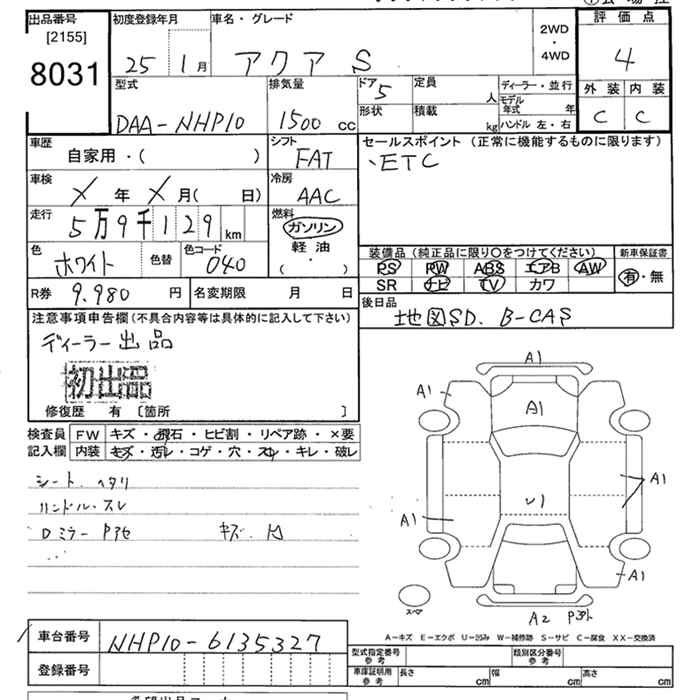 出品番号
[2155]
8031
初度登録年月
25 1月
車名・グレード
アクア S
2WD
・
4WD
評価点
4
外装 内装
C C
型式
DAA-NHP10
排気量
1500 cc
ドア
5
形状
定員
人
積載
kg
ディーラー・並行
モデル年式 年
ハンドル 左・右
車歴
自家用・( )
シフト
FAT
セールスポイント (正常に機能するものに限ります)
、ETC
車検
メ 年 メ 月( 日)
冷房
AAC
走行
5万9千129 km
燃料
ガソリン
軽油
( ・ )
色
ホワイト
色替
色コード
040
装備品 (純正品に限り○をつけてください)
PS PW ABS エアB AW
SR ナビ TV カワ
新車保証書
有・無
R券 9.980 円
名変期限 月 日
後日品
地図SD. B-CAS
注意事項申告欄(不具合内容等は具体的に記入して下さい)
ディーラー出品
初出品
修復歴 有 〔箇所 〕
検査員
記入欄
FW キズ・飛石・ヒビ割・リペア跡・×要
内装 キズ・汚レ・コゲ・穴・スレ・キレ・破レ
シート ヘタリ
ハンドル・スレ
Dミラー
キズ.
A1
A1
A1
A1
A1
A1
A2
スペア
A－キズ E－エクボ U－凹み W－補修跡 S－サビ C－腐食 XX－交換済
車台番号 NHP10-6135327
登録番号
型式指定番号
参考
類別区分番号
参考
車庫証明用
参考
長さ cm
幅 cm
高さ cm